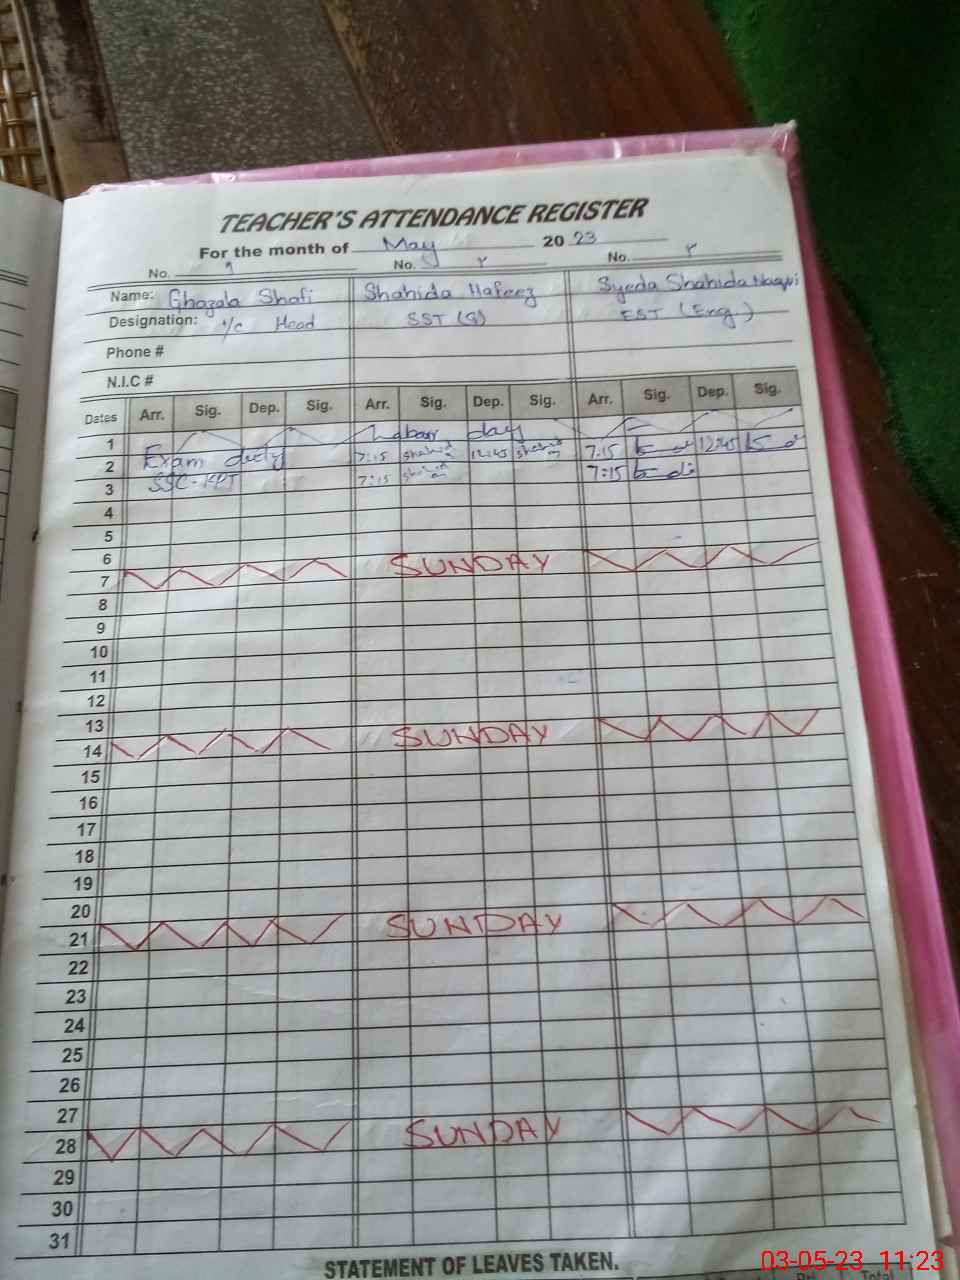 TEACHER'S ATTENDANCE REGISTER
For the month of May 2023
No. ۱ No. ۲ No.
Name: Ghazala Shafi Shahida Hafeez Syeda Shahida Naqvi
Designation: I/C Head SST (G) EST (Eng.)
Phone #
N.I.C #
Dates Arr. Sig. Dep. Sig. Arr. Sig. Dep. Sig. Arr. Sig. Dep. Sig.
1 Labour day
2 Exam duty 7:15 12:45 7:15 12:45
3 7:15 7:15
4
5
6
7 SUNDAY
8
9
10
11
12
13
14 SUNDAY
15
16
17
18
19
20
21 SUNDAY
22
23
24
25
26
27
28 SUNDAY
29
30
31
STATEMENT OF LEAVES TAKEN.
03-05-23 11:23
Total